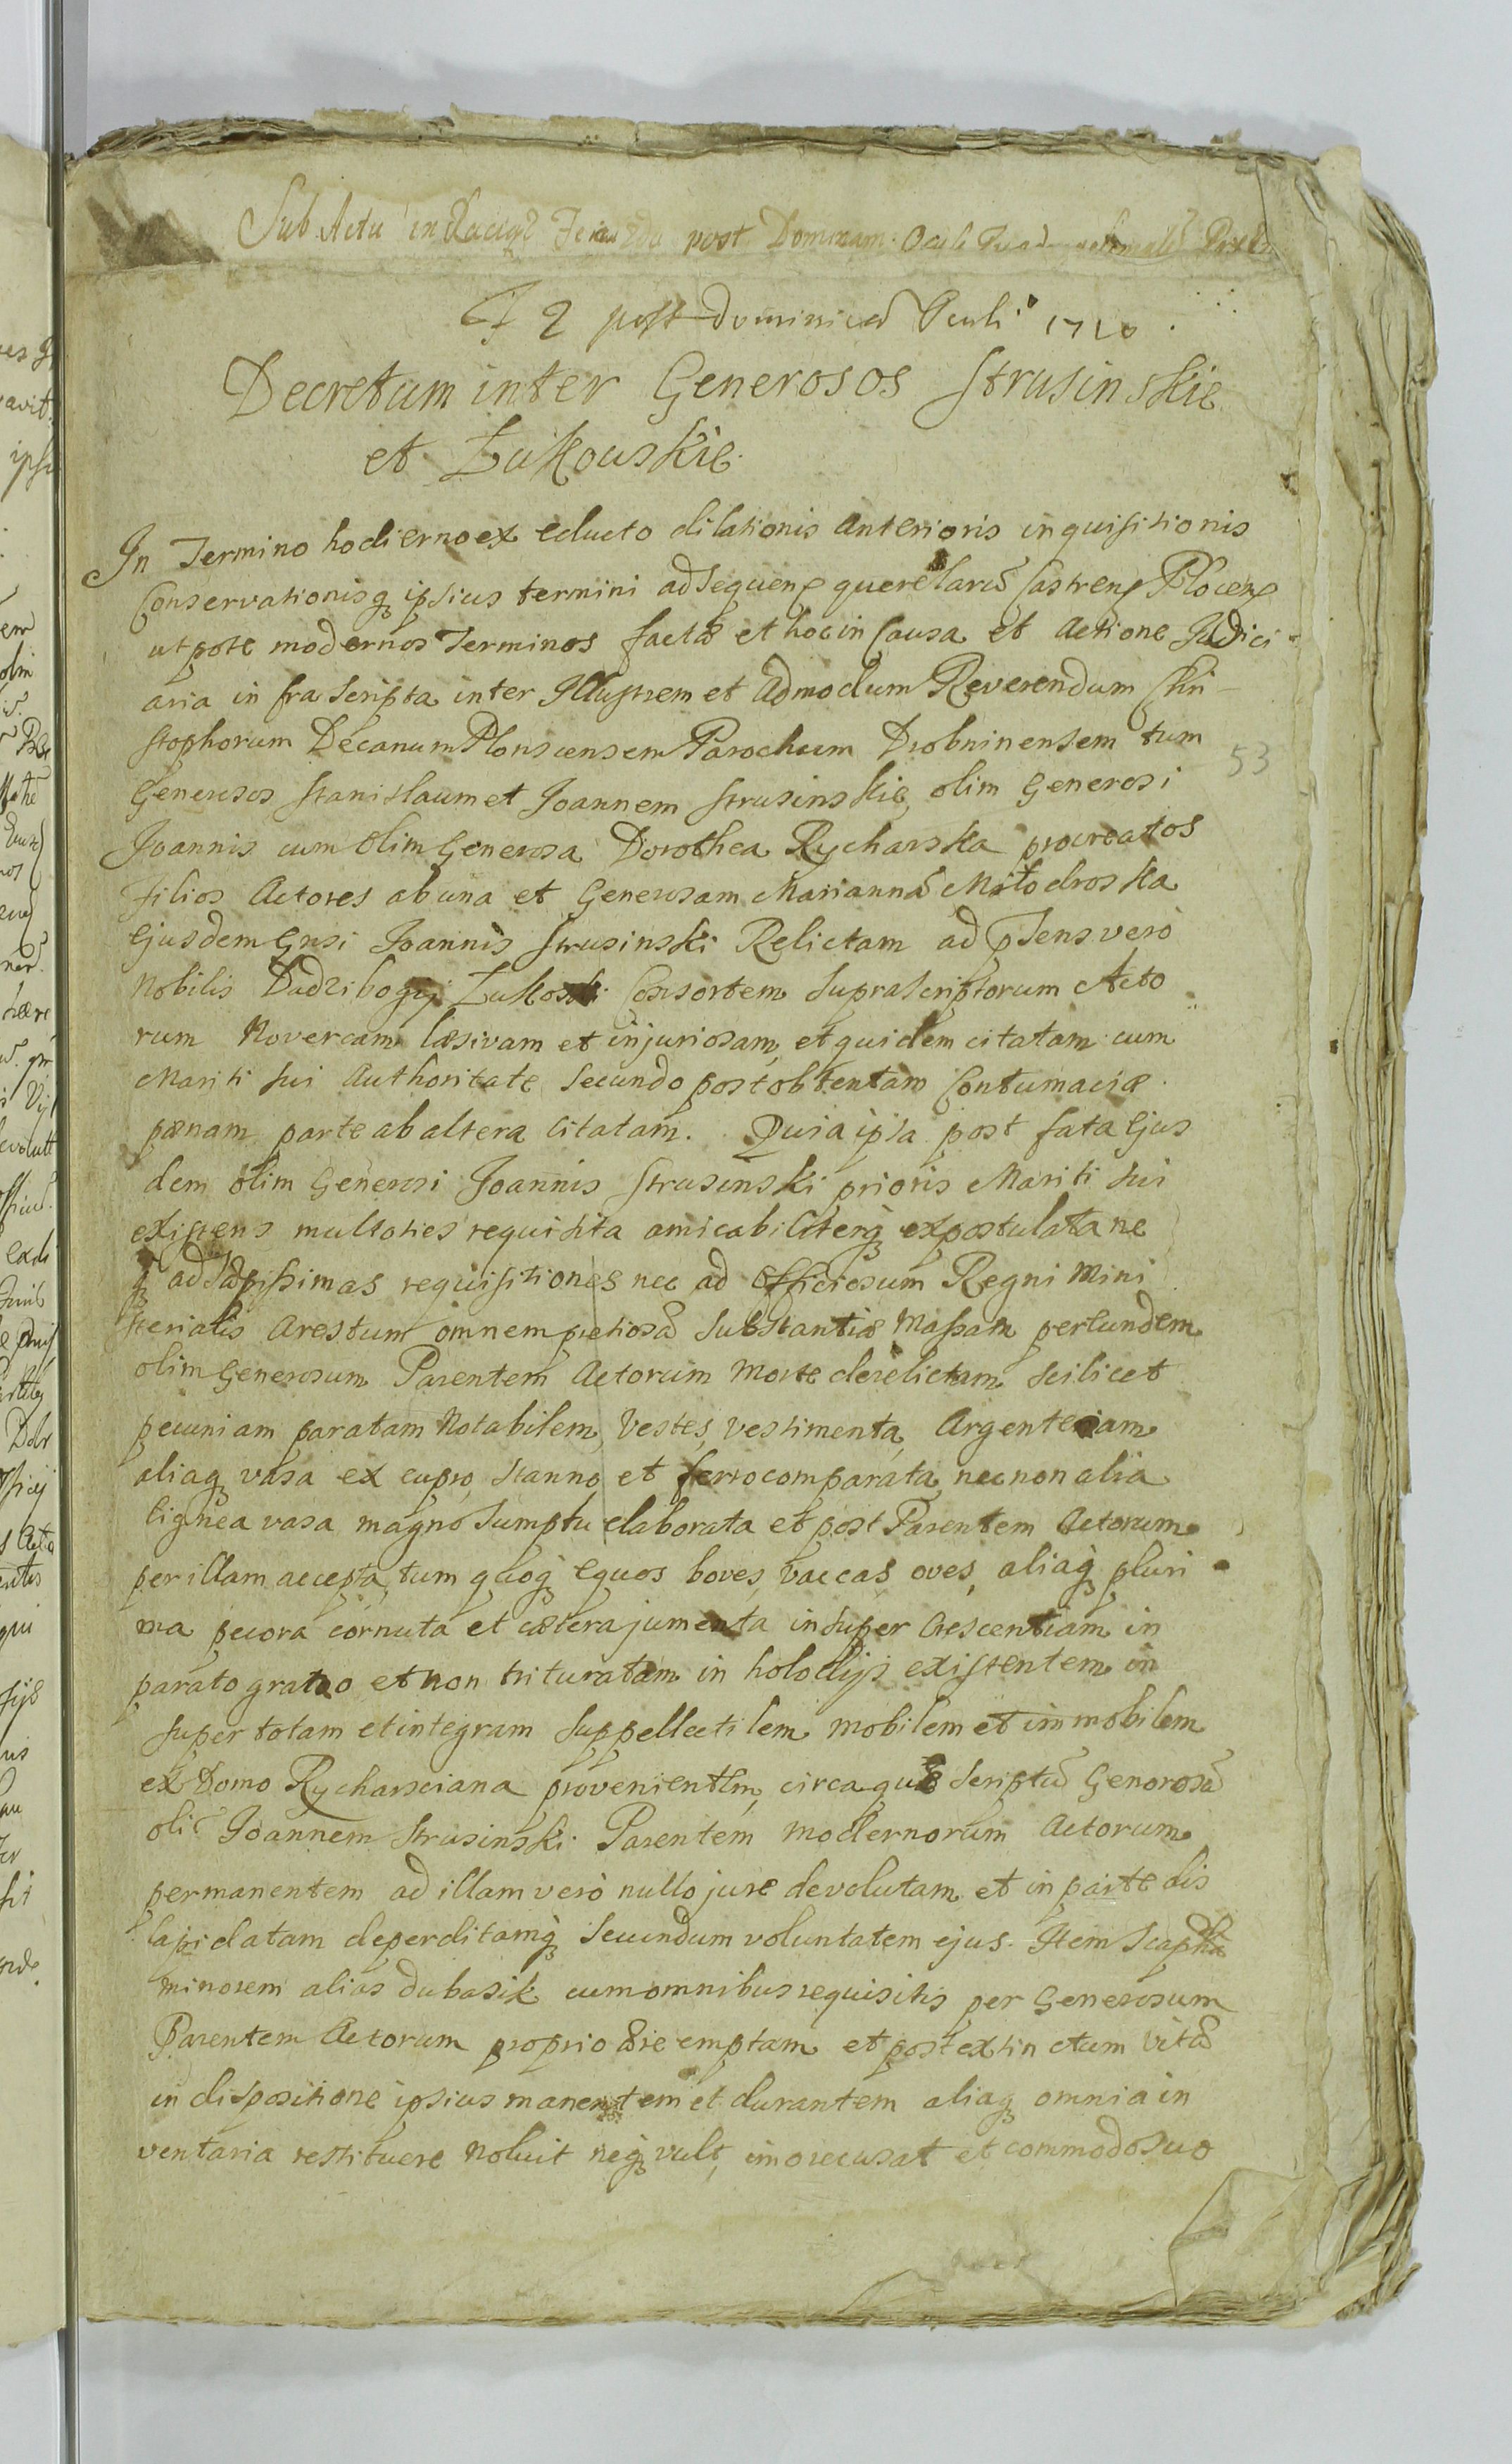 Sub Actu in Raciąż Feria 2da post Dominicam Oculi Quadragesimalem
F 2 post Dominicã Oculi 1710
Decretum inter Generosos Strusinskie
et Łukouskie
In Termino hodierno ex educto dilationis anterioris inquisitionis
Conservationisq ipsius termini ad sequen querelarũ Castren Plocen
utpote modernos Terminos factæ et hoc in Causa et Actione Judici
aria infra scripta inter Illustrem et admodum Reverendum Chri-
stophorum Decanum Plonscensem Parochum Drobninensem tum
Generosos Stanislaum et Joannem Strusinskie olim Generosi
Joannis cum olim Generosa Dorothea Rycharska procreatos
Filios Actores ab una et Generosam Mariannã Miłodroska
Ejusdem Gnsi Joannis Strusinski Relictam ad psens verò
Nobilis Dadzibogij Łukoski Consortem supra scriptorum Acto
rum Novercam læsivam et injuriosam, et quidem citatam cum
Mariti sui Authoritate secundo post obtentam Contumaciæ
pænam parte ab altera Citatam. Quia ipsa post fata Ejus
dem olim Generosi Joannis Strusinski prioris Mariti sui
existens multoties requisita amicabiliterq expostulata ne
q ad sæpissimas requisitiones nec ad officiosum Regni Mini
sterialis Arestum omnem pretiosã substantiæ Massam per eundem
olim Generosum Parentem Actorum Morte derelictam scilicet
pecuniam paratam Notabilem, Vestes, vestimenta, Argenteriam
aliaq vasa ex cupro, stanno et ferro comparata, necnon alia
lignea vasa magno sumptu elaborata et post Parentem Actorum
per illam accepta, tum quoq Equos boves, vaccas oves, aliaq pluri
ma pecora cornuta et cætera jumenta insuper Crescentiam in
parato grano et non trituratam in holodijs existentem in
super totam et integram suppellectilem mobilem et immobilem
ex Domo Rycharsciana provenientem, circa quæ scriptũ Generosũ
olĩ Joannem Strusinski Parentem modernorum Actorum
permanentem ad illam verò nullo jure devolutam et in parte di
lapidatam deperditamq secundum voluntatem ejus. Item Scaphã
minorem alias dubasik cum omnibus requisitis per Generosum
Parentem Actorum proprio ære emptam et post extinctam vitã
in dispositione ipsius manentem et durantem aliaq omnia in
ventaria restituere noluit neq vult, imo recusat et commodo suo
53